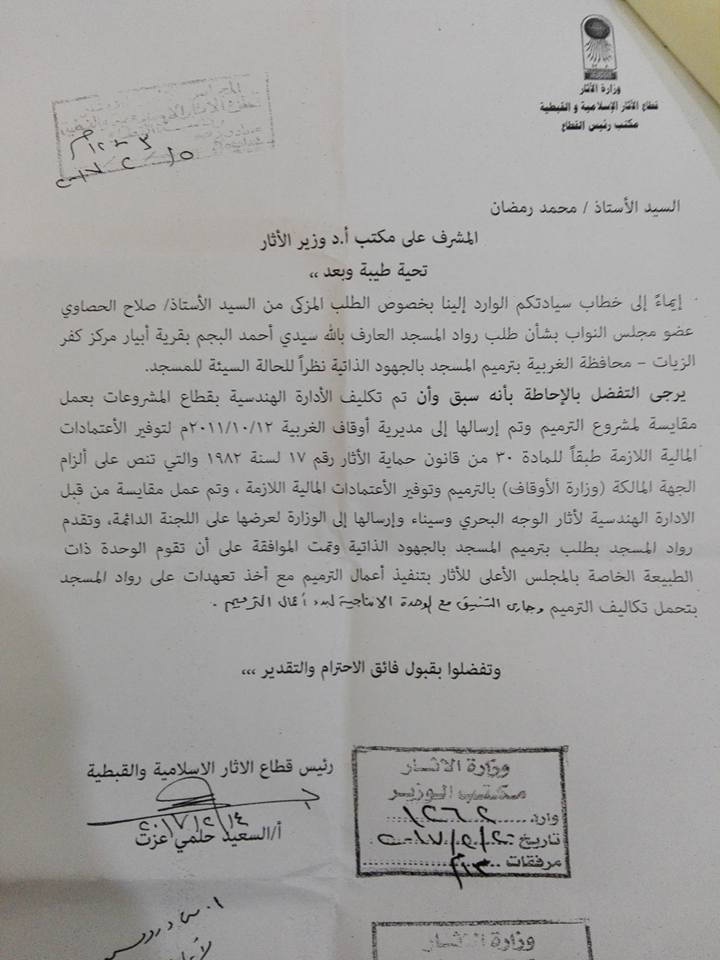 وزارة الأثار
قطاع الأثار الإسلامية و القبطية
مكتب رئيس القطاع
السيد الأستاذ / محمد رمضان
المشرف على مكتب أ.د وزير الأثار
تحية طيبة وبعد ،،
إيماءً إلى خطاب سيادتكم الوارد إلينا بخصوص الطلب المزكى من السيد الأستاذ/ صلاح الحصاوي
عضو مجلس النواب بشأن طلب رواد المسجد العارف بالله سيدي أحمد البجم بقرية أبيار مركز كفر
الزيات – محافظة الغربية بترميم المسجد بالجهود الذاتية نظراً للحالة السيئة للمسجد.
يرجى التفضل بالإحاطة بأنه سبق وأن تم تكليف الأدارة الهندسية بقطاع المشروعات بعمل
مقايسة لمشروع الترميم وتم إرسالها إلى مديرية أوقاف الغربية ٢٠١١/١٠/١٢م لتوفير الأعتمادات
المالية اللازمة طبقاً للمادة ٣٠ من قانون حماية الأثار رقم ١٧ لسنة ١٩٨٢ والتي تنص على ألزام
الجهة المالكة (وزارة الأوقاف) بالترميم وتوفير الأعتمادات المالية اللازمة ، وتم عمل مقايسة من قبل
الادارة الهندسية لأثار الوجه البحري وسيناء وإرسالها إلى الوزارة لعرضها على اللجنة الدائمة، وتقدم
رواد المسجد بطلب بترميم المسجد بالجهود الذاتية وتمت الموافقة على أن تقوم الوحدة ذات
الطبيعة الخاصة بالمجلس الأعلى للأثار بتنفيذ أعمال الترميم مع أخذ تعهدات على رواد المسجد
بتحمل تكاليف الترميم وجارى التنسيق مع الوحدة الانتاجية لبدء أعمال الترميم .
وتفضلوا بقبول فائق الاحترام والتقدير ،،،
رئيس قطاع الاثار الاسلامية والقبطية
٢٠١٧/٢/١٤
أ/السعيد حلمي عزت
وزارة الاثار
مكتب الوزير
وارد
تاريخ
مرفقات
وزارة الاثار